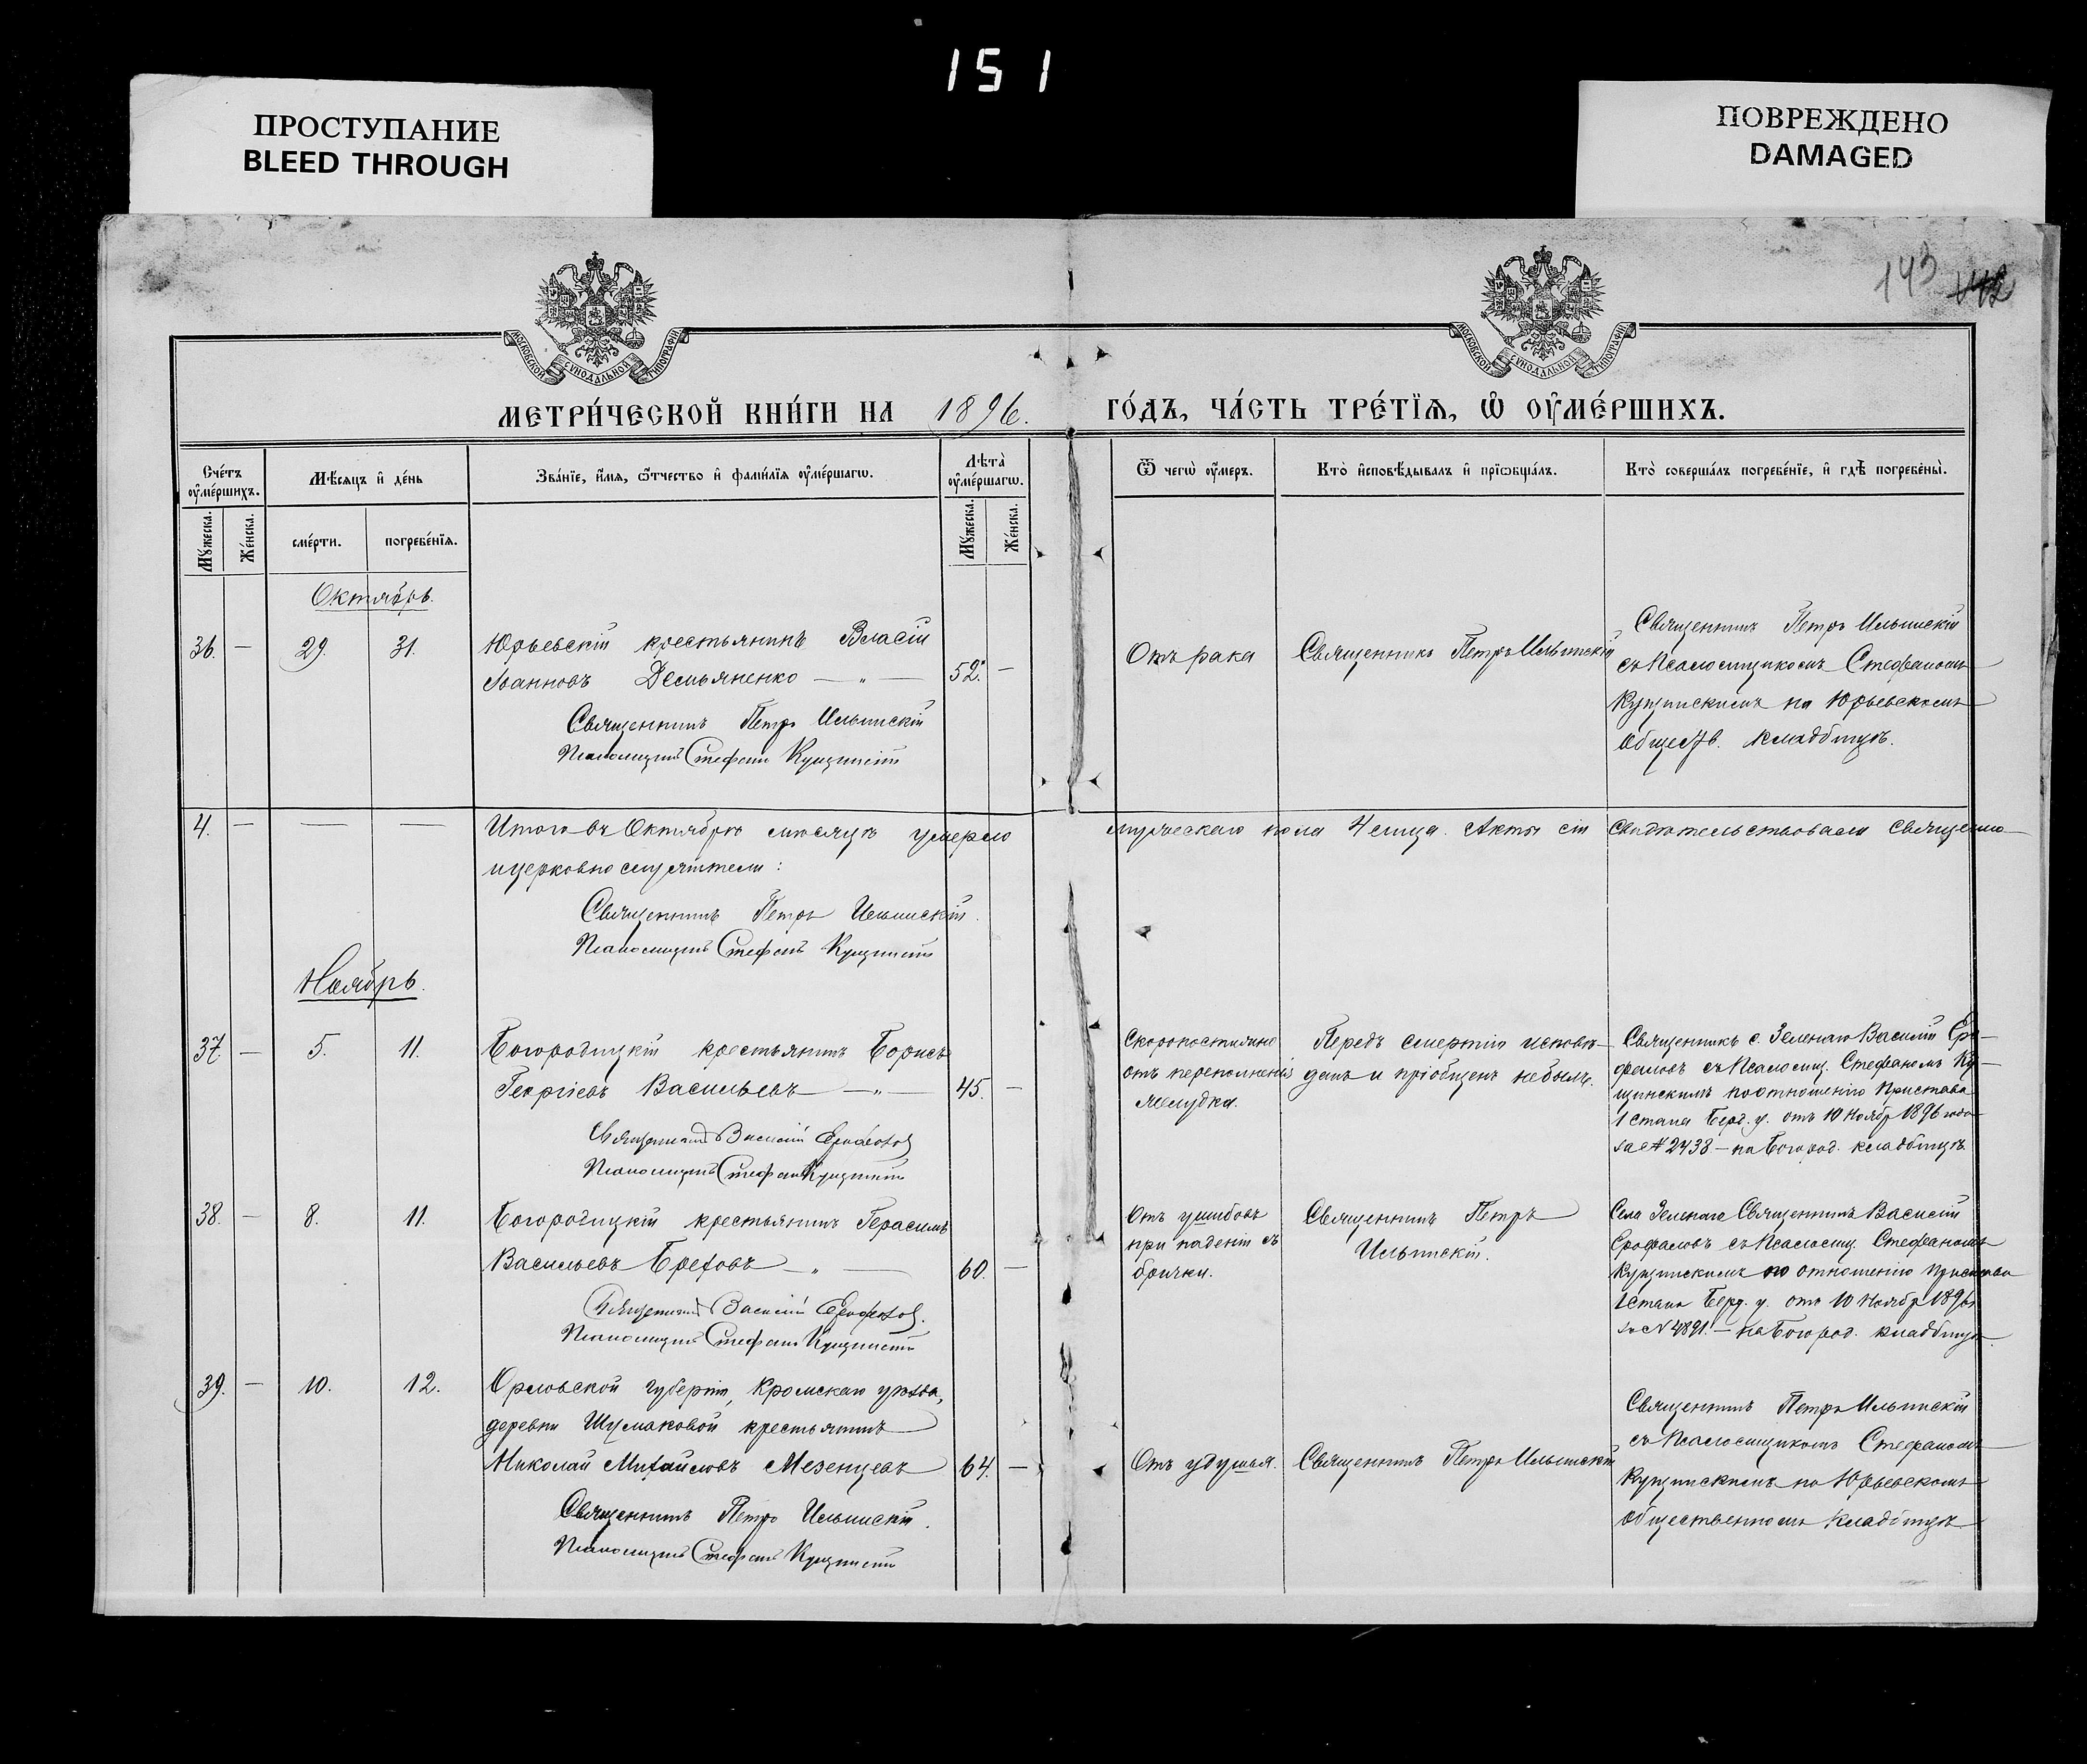 151
ПРОСТУПАНИЕ
BLEED THROUGH
ПОВРЕЖДЕНО
DAMAGED
143
142
МОСКОВСКОЙ СѴНОДАЛЬНОЙ ТИПОГРАФІИ
МОСКОВСКОЙ СѴНОДАЛЬНОЙ ТИПОГРАФІИ
МЕТРИ́ЧЕСКОЙ КНИ́ГИ НА 1896. ГО́ДЪ, ЧА́СТЬ ТРЕ́ТЇѦ, Ѡ҆ ОУ҆МЕ́РШИХЪ.
Сче́тъ оу҆ме́ршихъ.
Мꙋ́жеска.
Же́нска.
Мѣ́сѧцъ и҆ де́нь
сме́рти.
погребе́нїѧ.
Зва́нїе, и҆́мѧ, ѻ҆́тчество и҆ фами́лїѧ оу҆ме́ршагѡ.
Лѣта̀ оу҆ме́ршагѡ.
Мꙋ́жеска.
Же́нска.
Ѿ чегѡ̀ оу҆́меръ.
Кто̀ и҆сповѣ́дывалъ и҆ прїѡбща́лъ.
Кто̀ соверша́лъ погребе́нїе, и҆ гдѣ̀ погребены̀.
Октябрь.
36. — 29. 31. Юрьевскій крестьянинъ Власій
Іоанновъ Демьяненко — „ — 52. —
Священникъ Петръ Ильинскій
Псаломщикъ Стефанъ
Отъ рака
Священникъ Петръ Ильинскій
Священникъ Петръ Ильинскій
съ Псаломщикомъ Стефаномъ
на Юрьевскомъ
обществ. кладбищѣ.
4. — — — Итого въ Октябрѣ мѣсяцѣ умерло мужескаго пола 4 лица. Акты сіи свидѣтельствовали священно-
и церковно служители:
Священникъ Петръ Ильинскій.
Псаломщикъ Стефанъ
Ноябрь.
37 — 5. 11. Богородицкій крестьянинъ Борисъ
Георгіевъ Васильевъ — „ — 45. —
Священникъ Василій Ерофаловъ
Псаломщикъ Стефанъ
Скоропостижно
отъ переполненія
желудка.
Передъ смертію исповѣ-
данъ и пріобщенъ небылъ.
Священникъ с. Зеленаго Василій Еро-
фаловъ съ Псаломщ. Стефаномъ
по отношенію Пристава
1 стана Берд. у. отъ 10 Ноябр 1896 года
за № 2438 — на Богород. кладбищѣ.
38. — 8. 11. Богородицкій крестьянинъ Герасимъ
Васильевъ Бреховъ — „ — 60. —
Священникъ Василій Ерофаловъ.
Псаломщикъ Стефанъ
Отъ ушибовъ
при паденіи съ
брички.
Священникъ Петръ
Ильинскій.
Села Зеленаго Священникъ Василій
Ерофаловъ съ Псаломщ. Стефаномъ
по отношенію Пристава
1 стана Берд. у. отъ 10 Ноябр 1896 г
за № 4891. — на Богород. кладбищѣ.
39. — 10. 12. Орловской губерніи, Кромскаго уѣзда,
деревни Шумаковой крестьянинъ
Николай Михайловъ Мезенцевъ 64. —
Священникъ Петръ Ильинскій.
Псаломщикъ Стефанъ
Отъ удушья.
Священникъ Петръ Ильинскій
Священникъ Петръ Ильинскій
съ Псаломщикомъ Стефаномъ
на Юрьевскомъ
общественномъ кладбищѣ